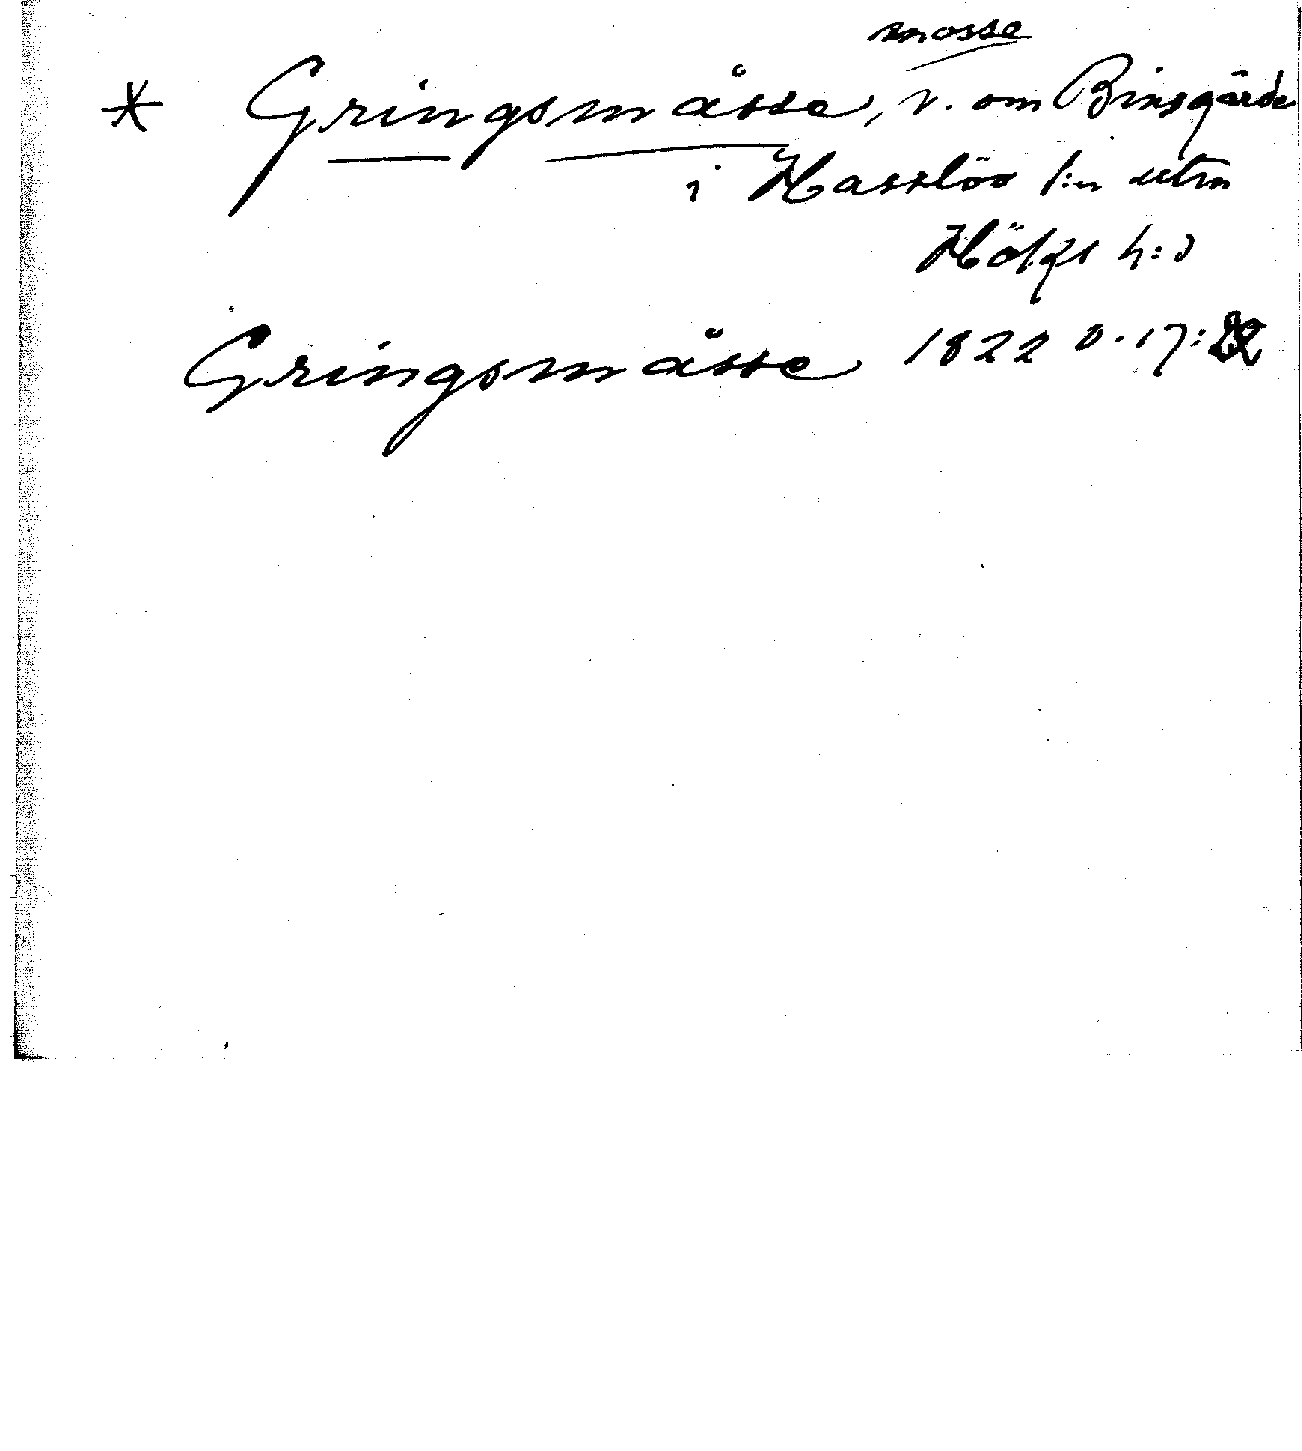 mosse
* Gringsmåsse, v. om Binsgärde
i Hasslöv s:n utm
Höks h:d
Gringsmåsse 1822 0.17: